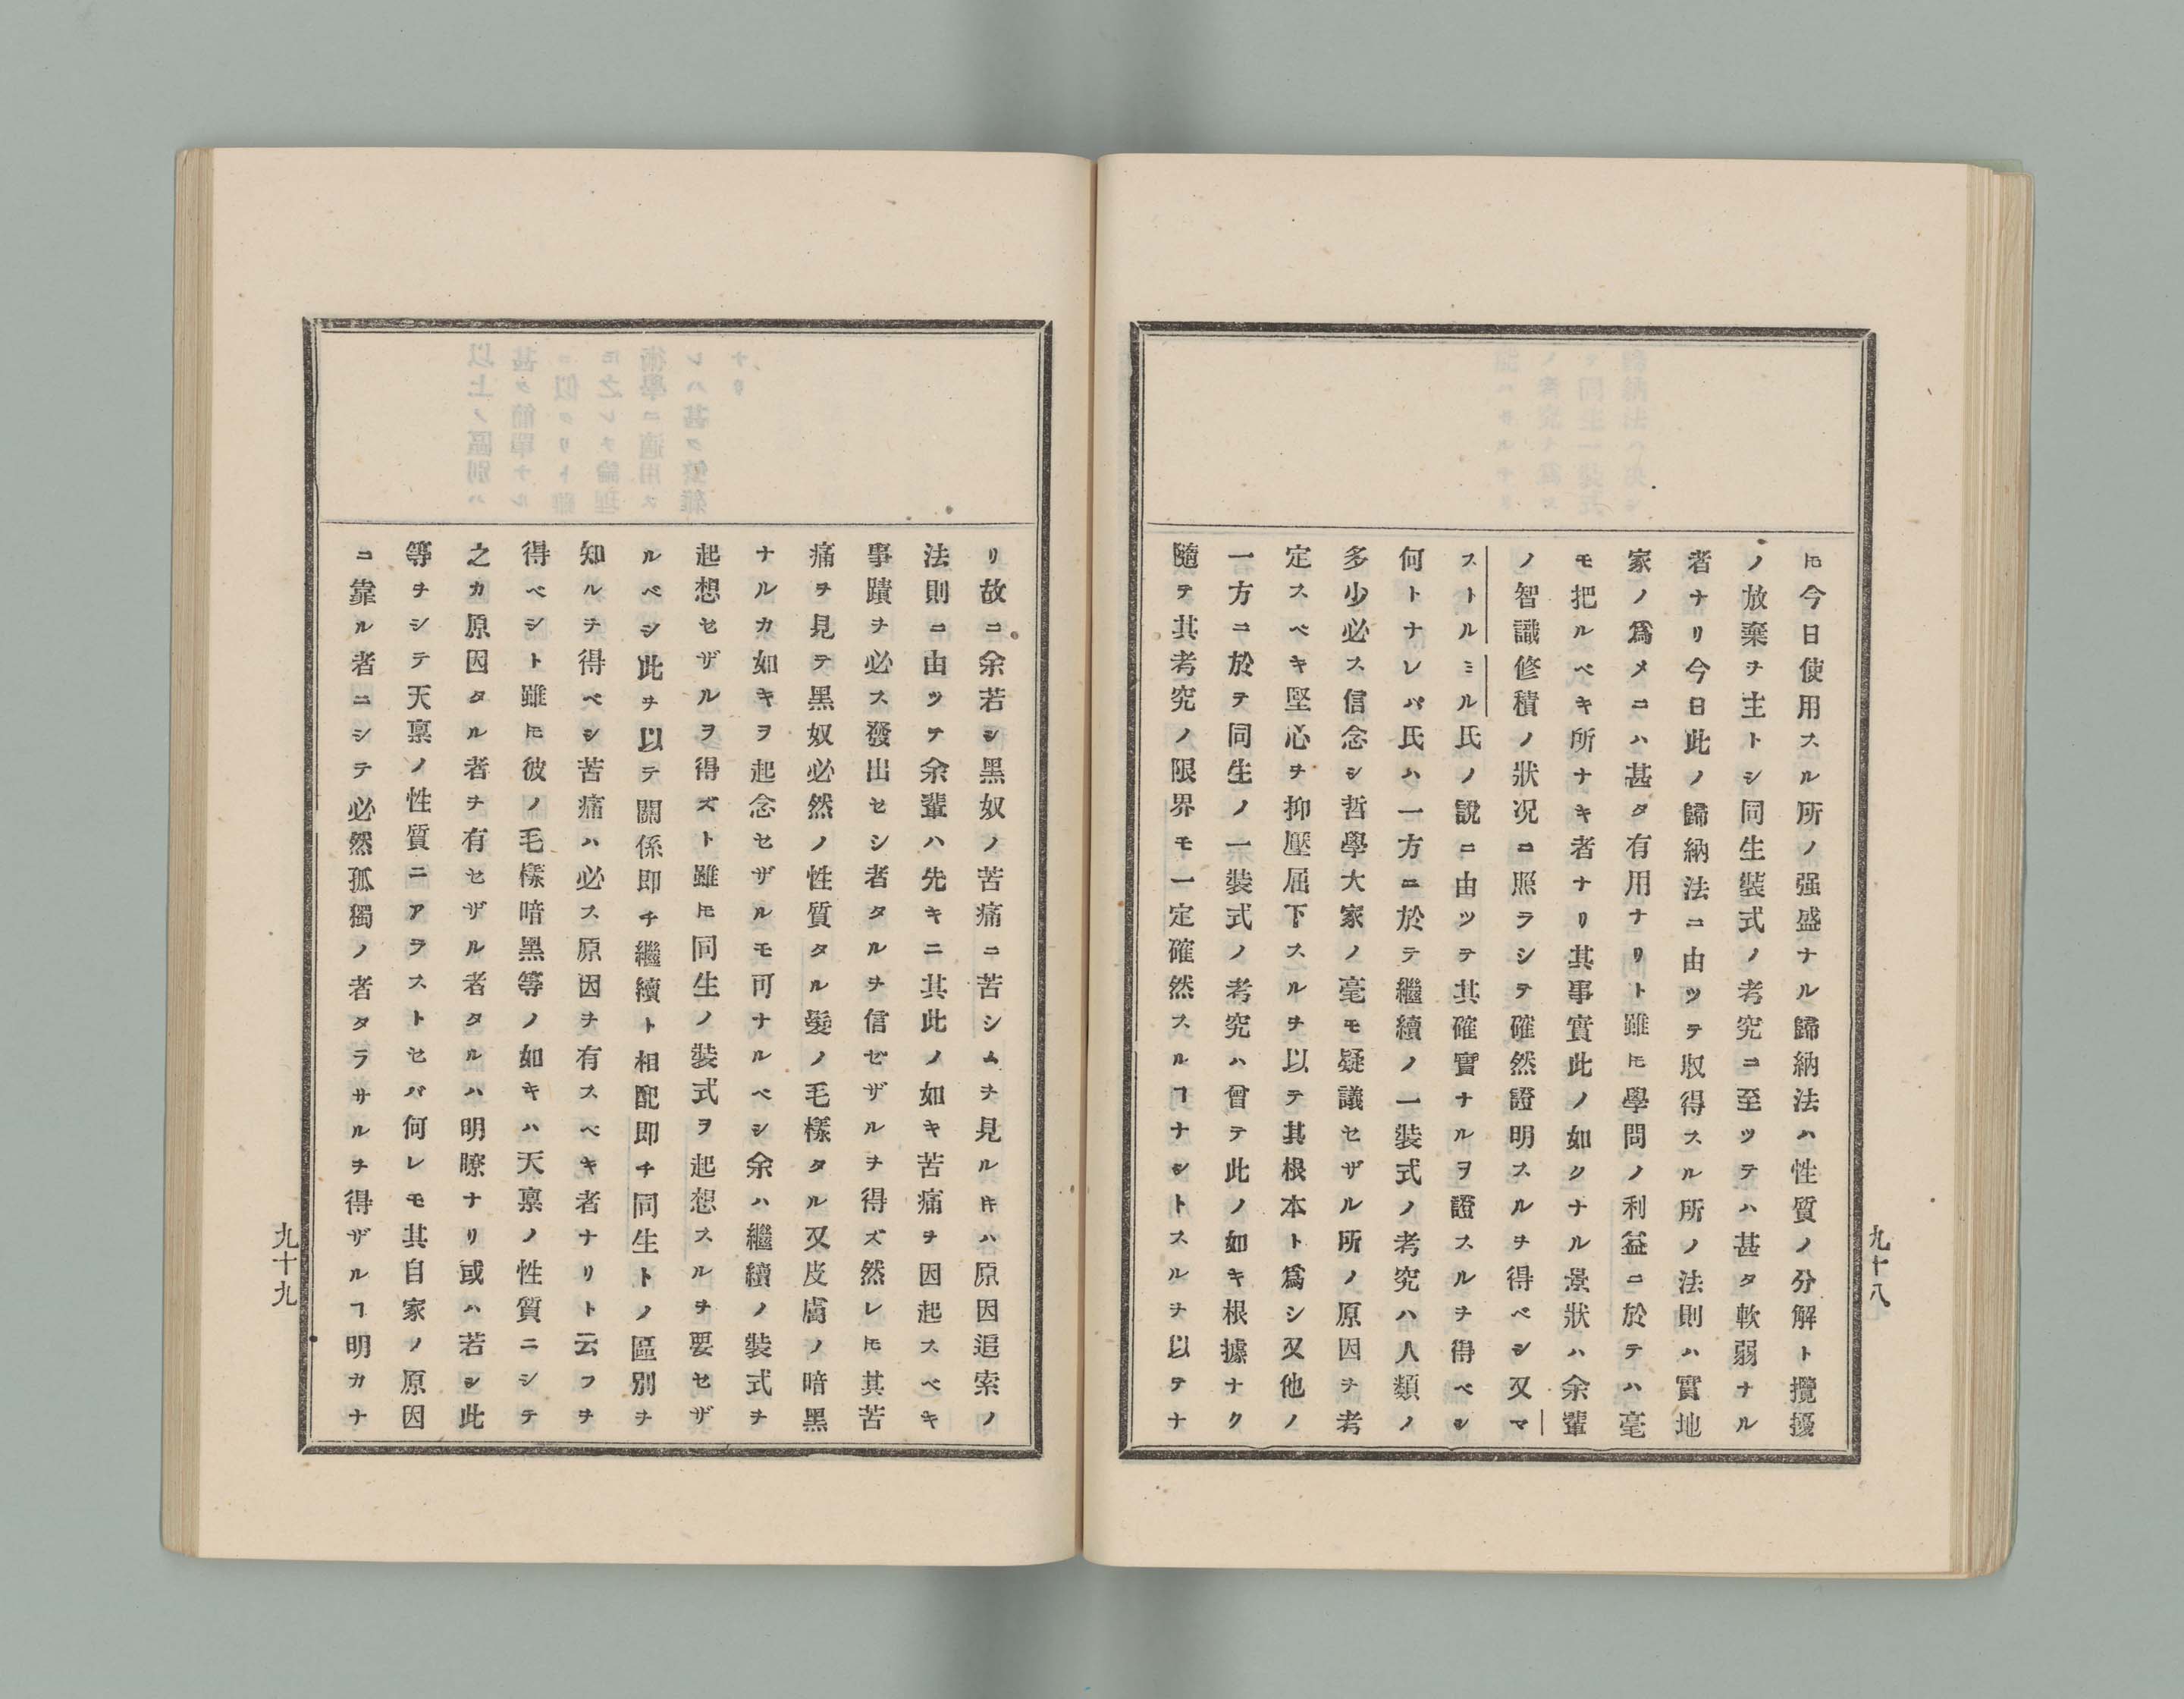 九十八
𪜈今日使用スル所ノ强盛ナル歸納法ハ性質ノ分解ト攪擾
ノ放棄ヲ主トシ同生裝式ノ考究ニ至ツテハ甚タ軟弱ナル
者ナリ今日此ノ歸納法ニ由ツテ取得スル所ノ法則ハ實地
家ノ爲メニハ甚タ有用ナリト雖𪜈學問ノ利益ニ於テハ毫
モ把ルベキ所ナキ者ナリ其事實此ノ如クナル景狀ハ余輩
ノ智識修積ノ狀况ニ照ラシテ確然證明スルヲ得ベシ又マ
ストルミル氏ノ說ニ由ツテ其確實ナルヲ證スルヲ得ベシ
何トナレバ氏ハ一方ニ於テ繼續ノ一裝式ノ考究ハ人類ノ
多少必ス信念シ哲學大家ノ毫モ疑議セザル所ノ原因ヲ考
定スベキ堅心ヲ抑壓屈下スルヲ以テ其根本ト爲シ又他ノ
一方ニ於テ同生ノ一裝式ノ考究ハ曾テ此ノ如キ根據ナク
隨テ其考究ノ限界モ一定確然スルヿナシトスルヲ以テナ
リ故ニ余若シ黑奴ノ苦痛ニ苦シムヲ見ル𪜈ハ原因追索ノ
法則ニ由ツテ余輩ハ先キニ其此ノ如キ苦痛ヲ因起スベキ
事蹟ヲ必ス發出セシ者タルヲ信ゼザルヲ得ズ然レ𪜈其苦
痛ヲ見テ黑奴必然ノ性質タル髮ノ毛樣タル又皮膚ノ暗黑
ナルカ如キヲ起念セザルモ可ナルベシ余ハ繼續ノ裝式ヲ
起想セザルヲ得ズト雖𪜈同生ノ裝式ヲ起想スルヲ要セザ
ルベシ此ヲ以テ關係即チ繼續ト相配即チ同生トノ區別ヲ
知ルヲ得ベシ苦痛ハ必ス原因ヲ有スベキ者ナリト云フヲ
得ベシト雖𪜈彼ノ毛樣暗黑等ノ如キハ天稟ノ性質ニシテ
之カ原因タル者ヲ有セザル者タルハ明瞭ナリ或ハ若シ此
等ヲシテ天稟ノ性質ニアラストセバ何レモ其自家ノ原因
ニ靠ル者ニシテ必然孤獨ノ者タラサルヲ得ザルヿ明カナ
九十九